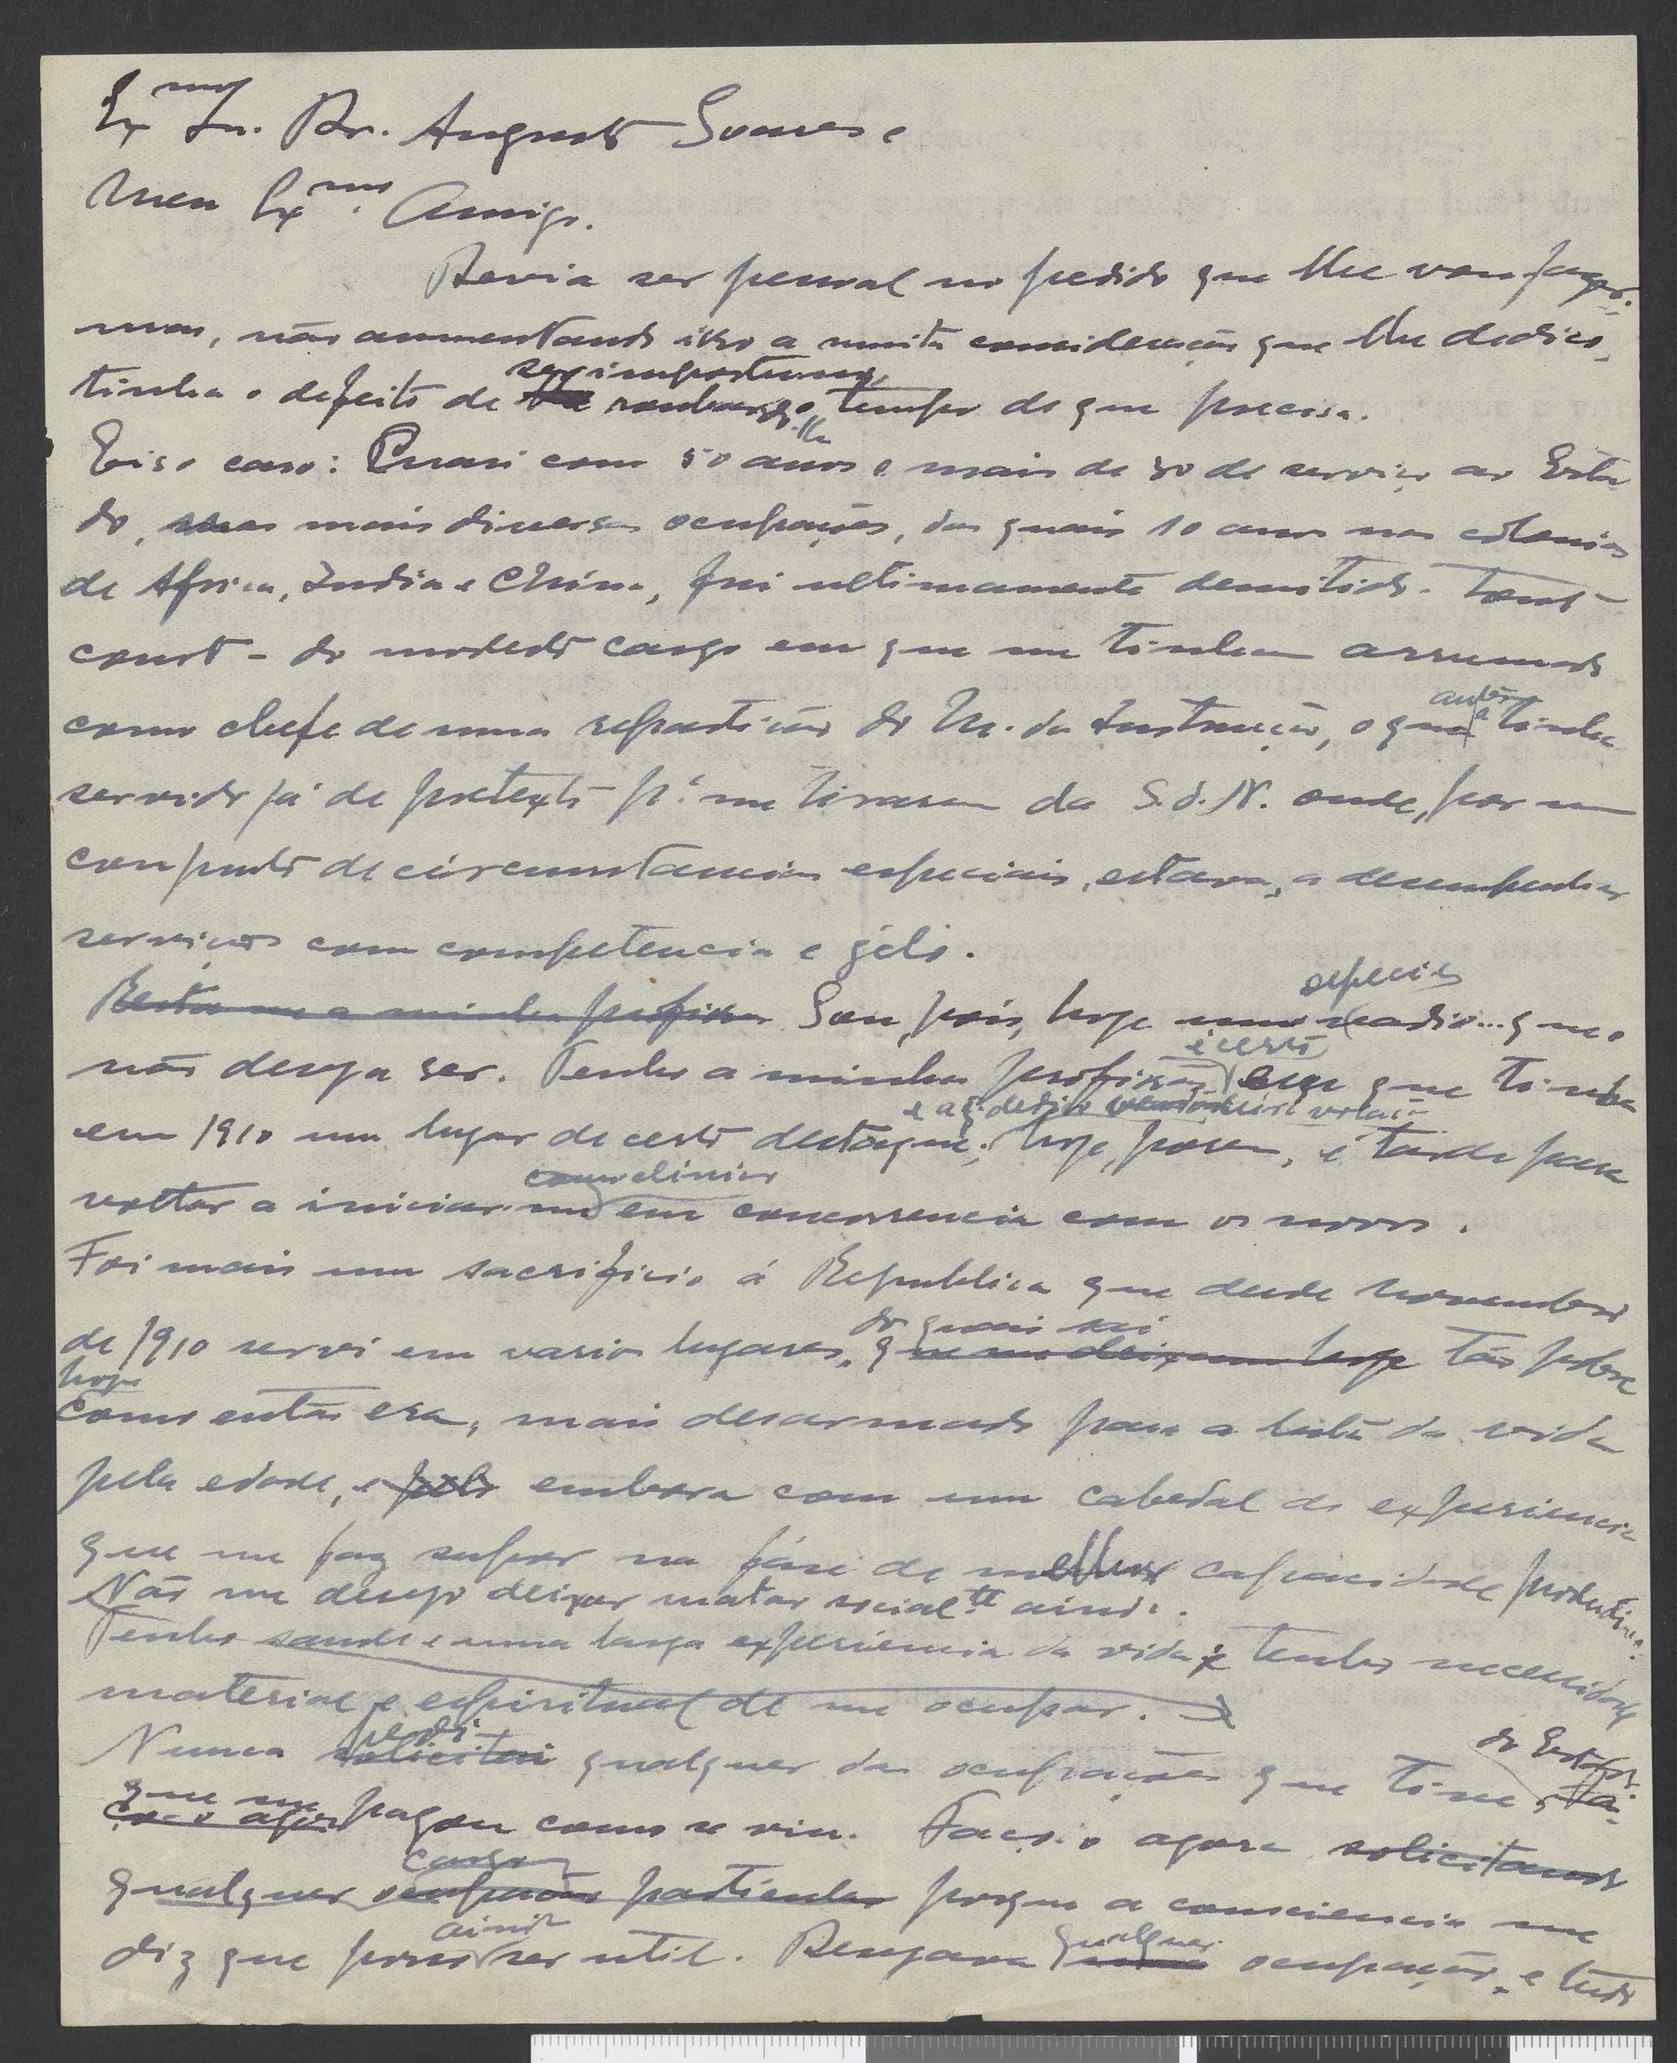 Exmo Sr. Dr. Augusto Soares e
Meu Exmo. Amigo.
Devia ser pessoal no pedido que lhe vou fazer.
mas, não aumentando isso a muita consideração que lhe dedico,
tinha o defeito de ser importuno, roubar-lhe o tempo de que precisa.
Eis o caso: Quasi com 50 anos e mais de 30 de serviço ao Esta
do, nas mais diversas ocupações, das quais 10 anos nas colonias
de Africa, India e China, fui ultimamente demitido - Tout-
court - do modesto cargo em que me tinham arrumado
como chefe de uma repartição do M. da Instrução, o qual antes tinha
servido já de pretexto pa. me tirarem da S.d.N. onde, por um
conjunto de circumstancias especiais, estava a desempenhar
serviços com competencia e zêlo.
Resta-me a minha profissão Sou, pois, hoje uma especie de vadio... que o
não deseja ser. Tenho a minha profissão é certo em que tinha
em 1910 um lugar de certo destaque; hoje, porem, é tarde para
voltar a iniciar-me como clinico em concorrencia com os novos.
Foi mais um sacrificio á Republica que desde novembro
de 1910 servi em varios lugares, dos quais sai tão pobre
hoje
como então era, mais desarmado para a luta da vida
pela edade, e pelo embora com um cabedal de experiencia
que me faz supor na fase de melhor capacidade productiva.
Não me desejo deixar matar socialte ainda.
Tenho saude e uma larga experiencia da vida e tenho necessidade
material e espiritual de me ocupar.
Nunca pedi solicitei qualquer das ocupações que tive do Estado
que me pagou como se viu. Faço-o agora solicitando
qualquer cargo ocupação particular porque a consciencia me
diz que posso ainda ser util. Desejava qualquer uma ocupação, e tudo